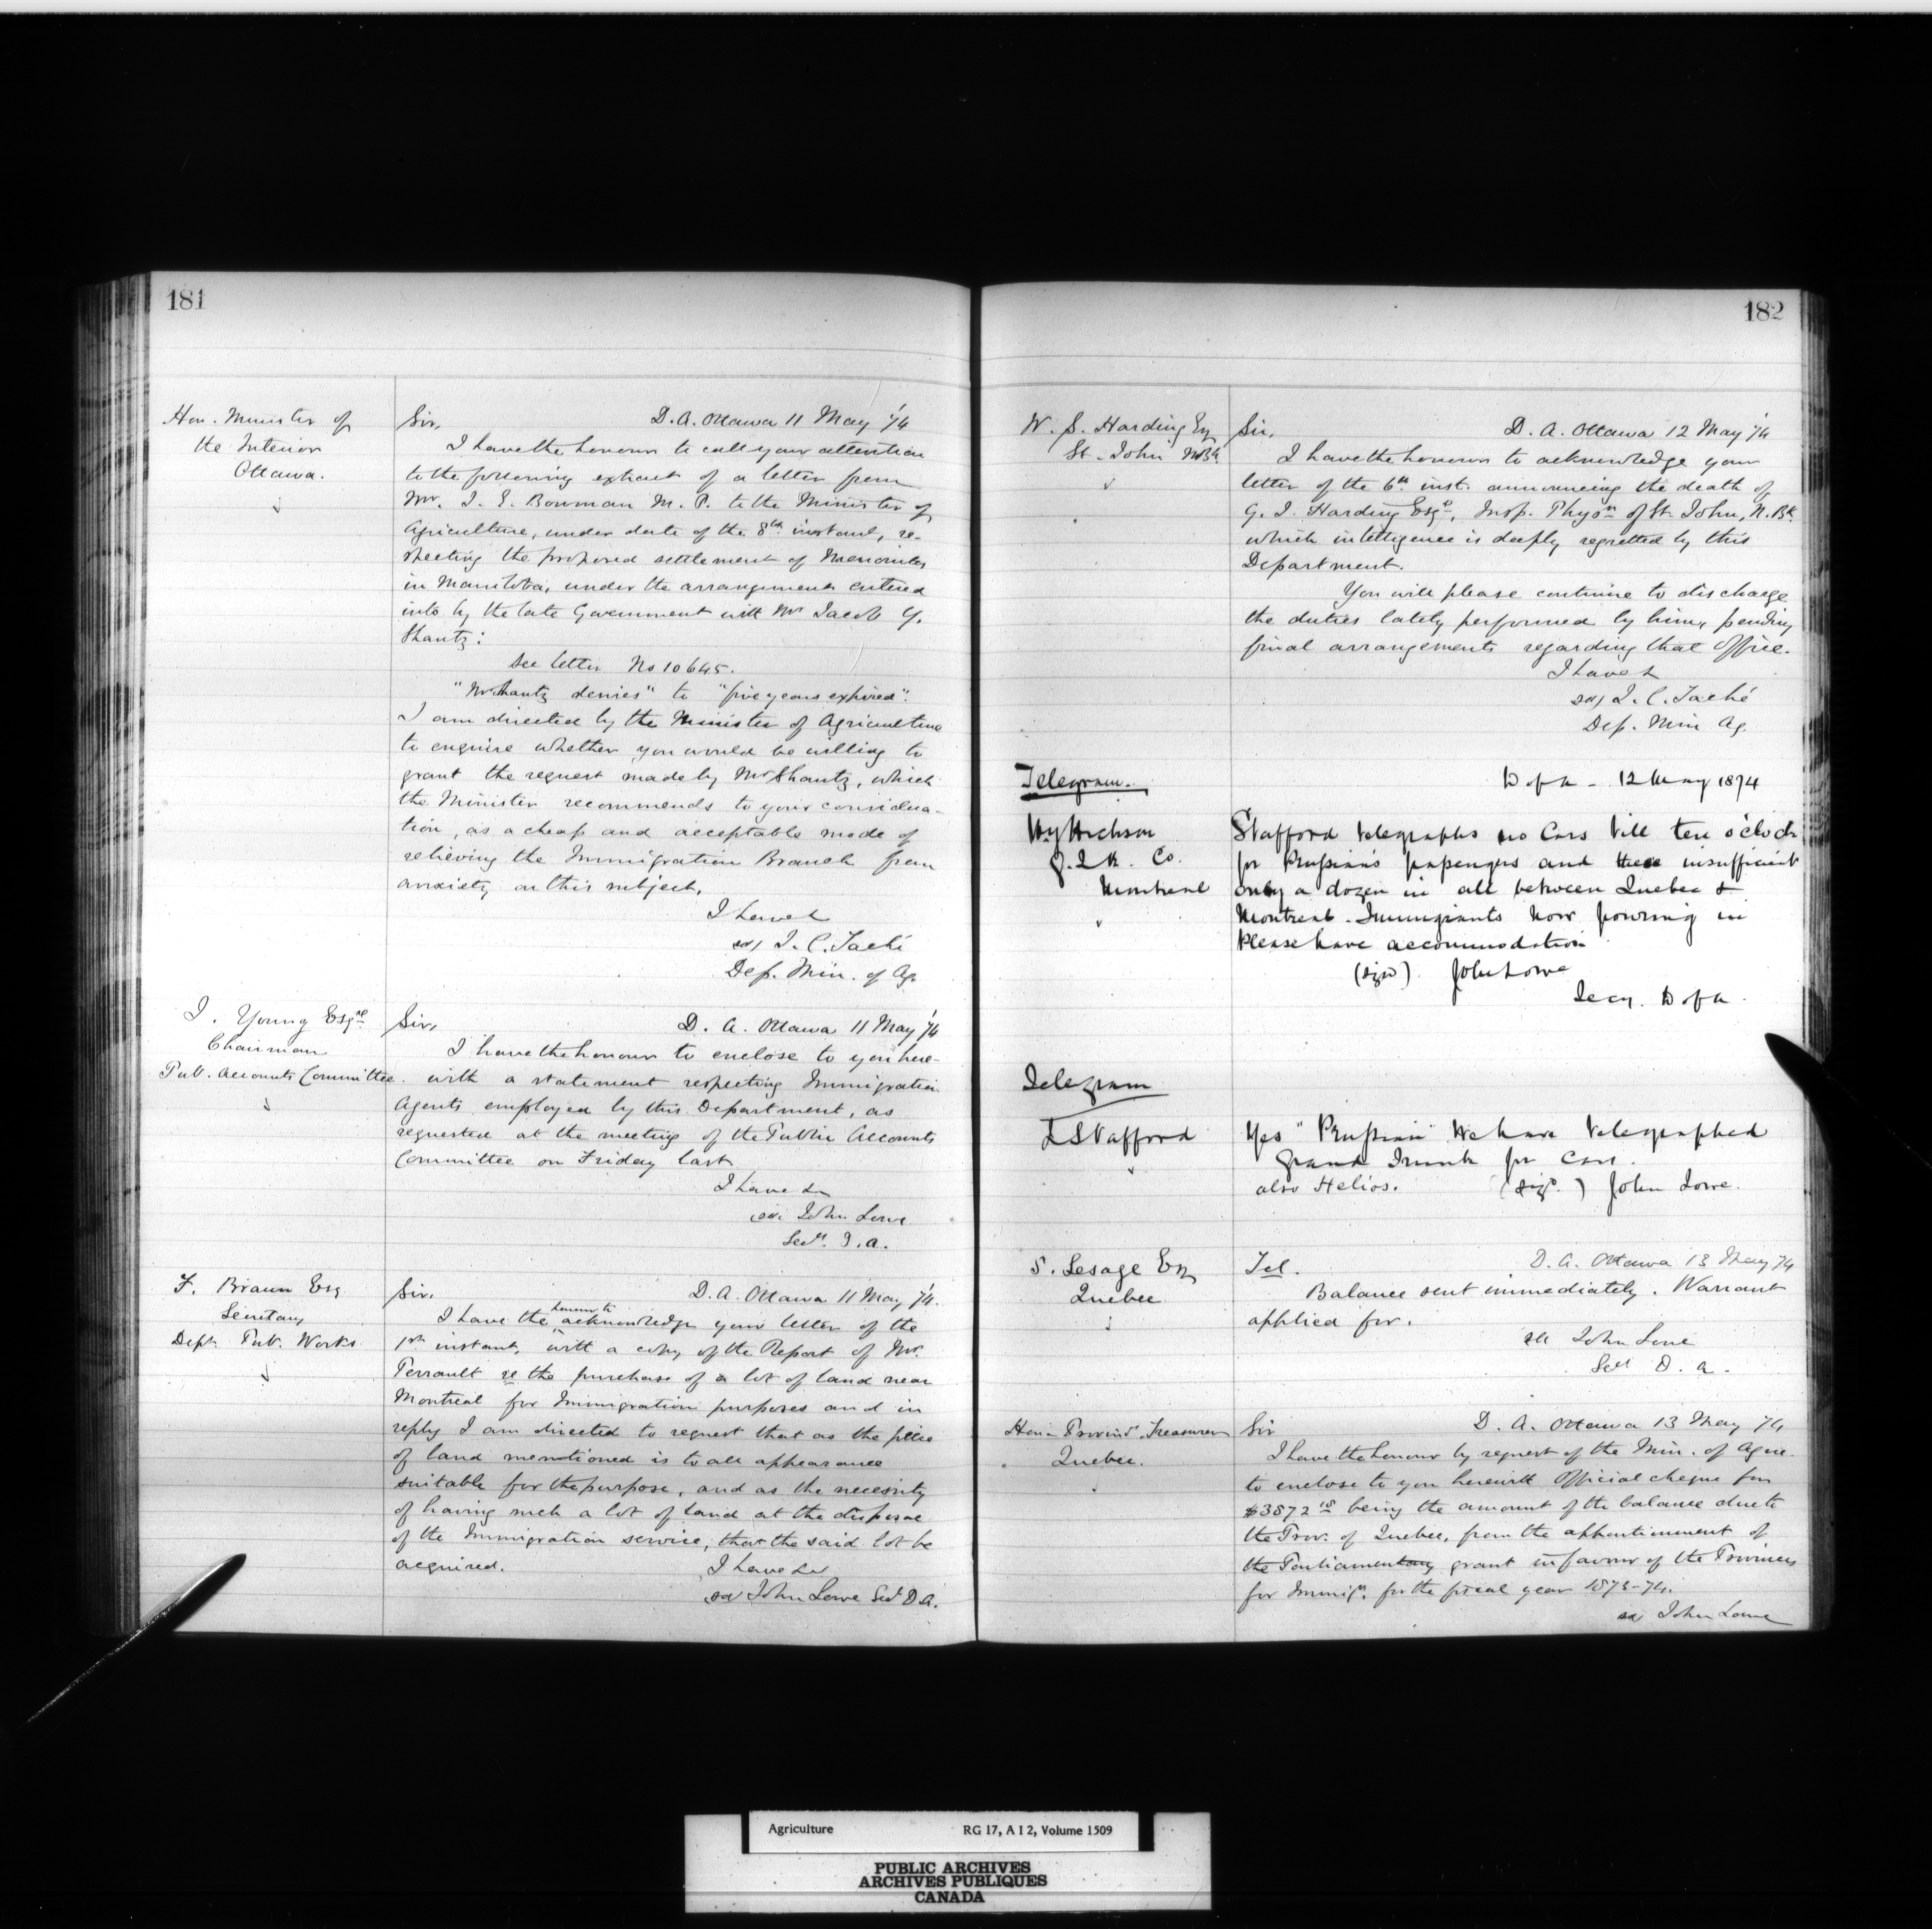 181
Hon. Minister of
the Interior
Ottawa.
Sir, D. A. Ottawa 11 May '74
I have the honour to call your attention
to the following extract of a letter from
Mr. I. E. Bowman M. P. to the Minister of
Agriculture, under date of the 8th instant, re-
specting the proposed settlement of Menonites
in Manitoba, under the arrangement entered
into by the late Government with Mr Jacob Y.
Shantz:
See letter No 10645.
"Mr Shantz denies" to "five years expired".
I am directed by the Minister of Agriculture
to enquire whether you would be willing to
grant the request made by Mr Shantz, which
the Minister recommends to your considera-
tion, as a cheap and acceptable mode of
relieving the Immigration Branch from
anxiety on this subject.
I have &
sd/ J. C. Taché
Dep. Min. of Ag.
J. Young Esqre
Chairman
Pub. Accounts Committee.
Sir, D. A. Ottawa 11 May '74
I have the honour to enclose to you here-
with a statement respecting Immigration
Agents employed by this Department, as
requested at the meeting of the Public Accounts
Committee on Friday last
I have &c
sd. John Lowe
Secy. D. A.
F. Braun Esq
Secretary
Dept. Pub. Works
Sir, D. A. Ottawa 11 May '74.
I have the honour to acknowledge your letter of the
1st instant, with a copy of the Report of Mr.
Perrault re the purchase of a lot of land near
Montreal for Immigration purposes and in
reply I am directed to request that as the piece
of land mentioned is to all appearance
suitable for the purpose, and as the necessity
of having such a lot of land at the disposal
of the Immigration service, that the said lot be
acquired.
I have &c
sd John Lowe Sec D. A.
182
W. S. Harding Esq
St. John N.Bk
Sir, D. A. Ottawa 12 May '74
I have the honour to acknowledge your
letter of the 6th inst. announcing the death of
G. J. Harding Esqre, Insp. Physn of St. John, N. Bk.
which intelligence is deeply regretted by this
Department.
You will please continue to discharge
the duties lately performed by him, pending
final arrangements regarding that Office.
I have &
sd/ J. C. Taché
Dep. Min Ag.
Telegram.
D of A - 12 May 1874
Hy Hickson
G. T. R. Co.
Montreal
Stafford telegraphs no Cars till ten o'clock
for Prussian's passengers and these insufficient
only a dozen in all between Quebec &
Montreal. Immigrants now pouring in
Please have accommodation
(sigd) John Lowe
Secy. D of A.
Telegram
L Stafford
Yes "Prussian" We have telegraphed
Grand Trunk for Cars.
also Helios. (sigd.) John Lowe.
S. Lesage Esq
Quebec
Tel. D. A. Ottawa 13 May '74
Balance sent immediately. Warrant
applied for.
sd John Lowe
Secy D. A.
Hon. Provinl. Treasurer
Quebec.
Sir D. A. Ottawa 13 May '74
I have the honour by request of the Min. of Agric.
to enclose to you herewith Official cheque for
being the amount of the balance due to
the Prov. of Quebec, from the apportionment of
the Parliamentary grant in favour of the Provinces
for Immign. for the fiscal year 1873-74.
sd John Lowe
Agriculture RG 17, A I 2, Volume 1509
PUBLIC ARCHIVES
ARCHIVES PUBLIQUES
CANADA